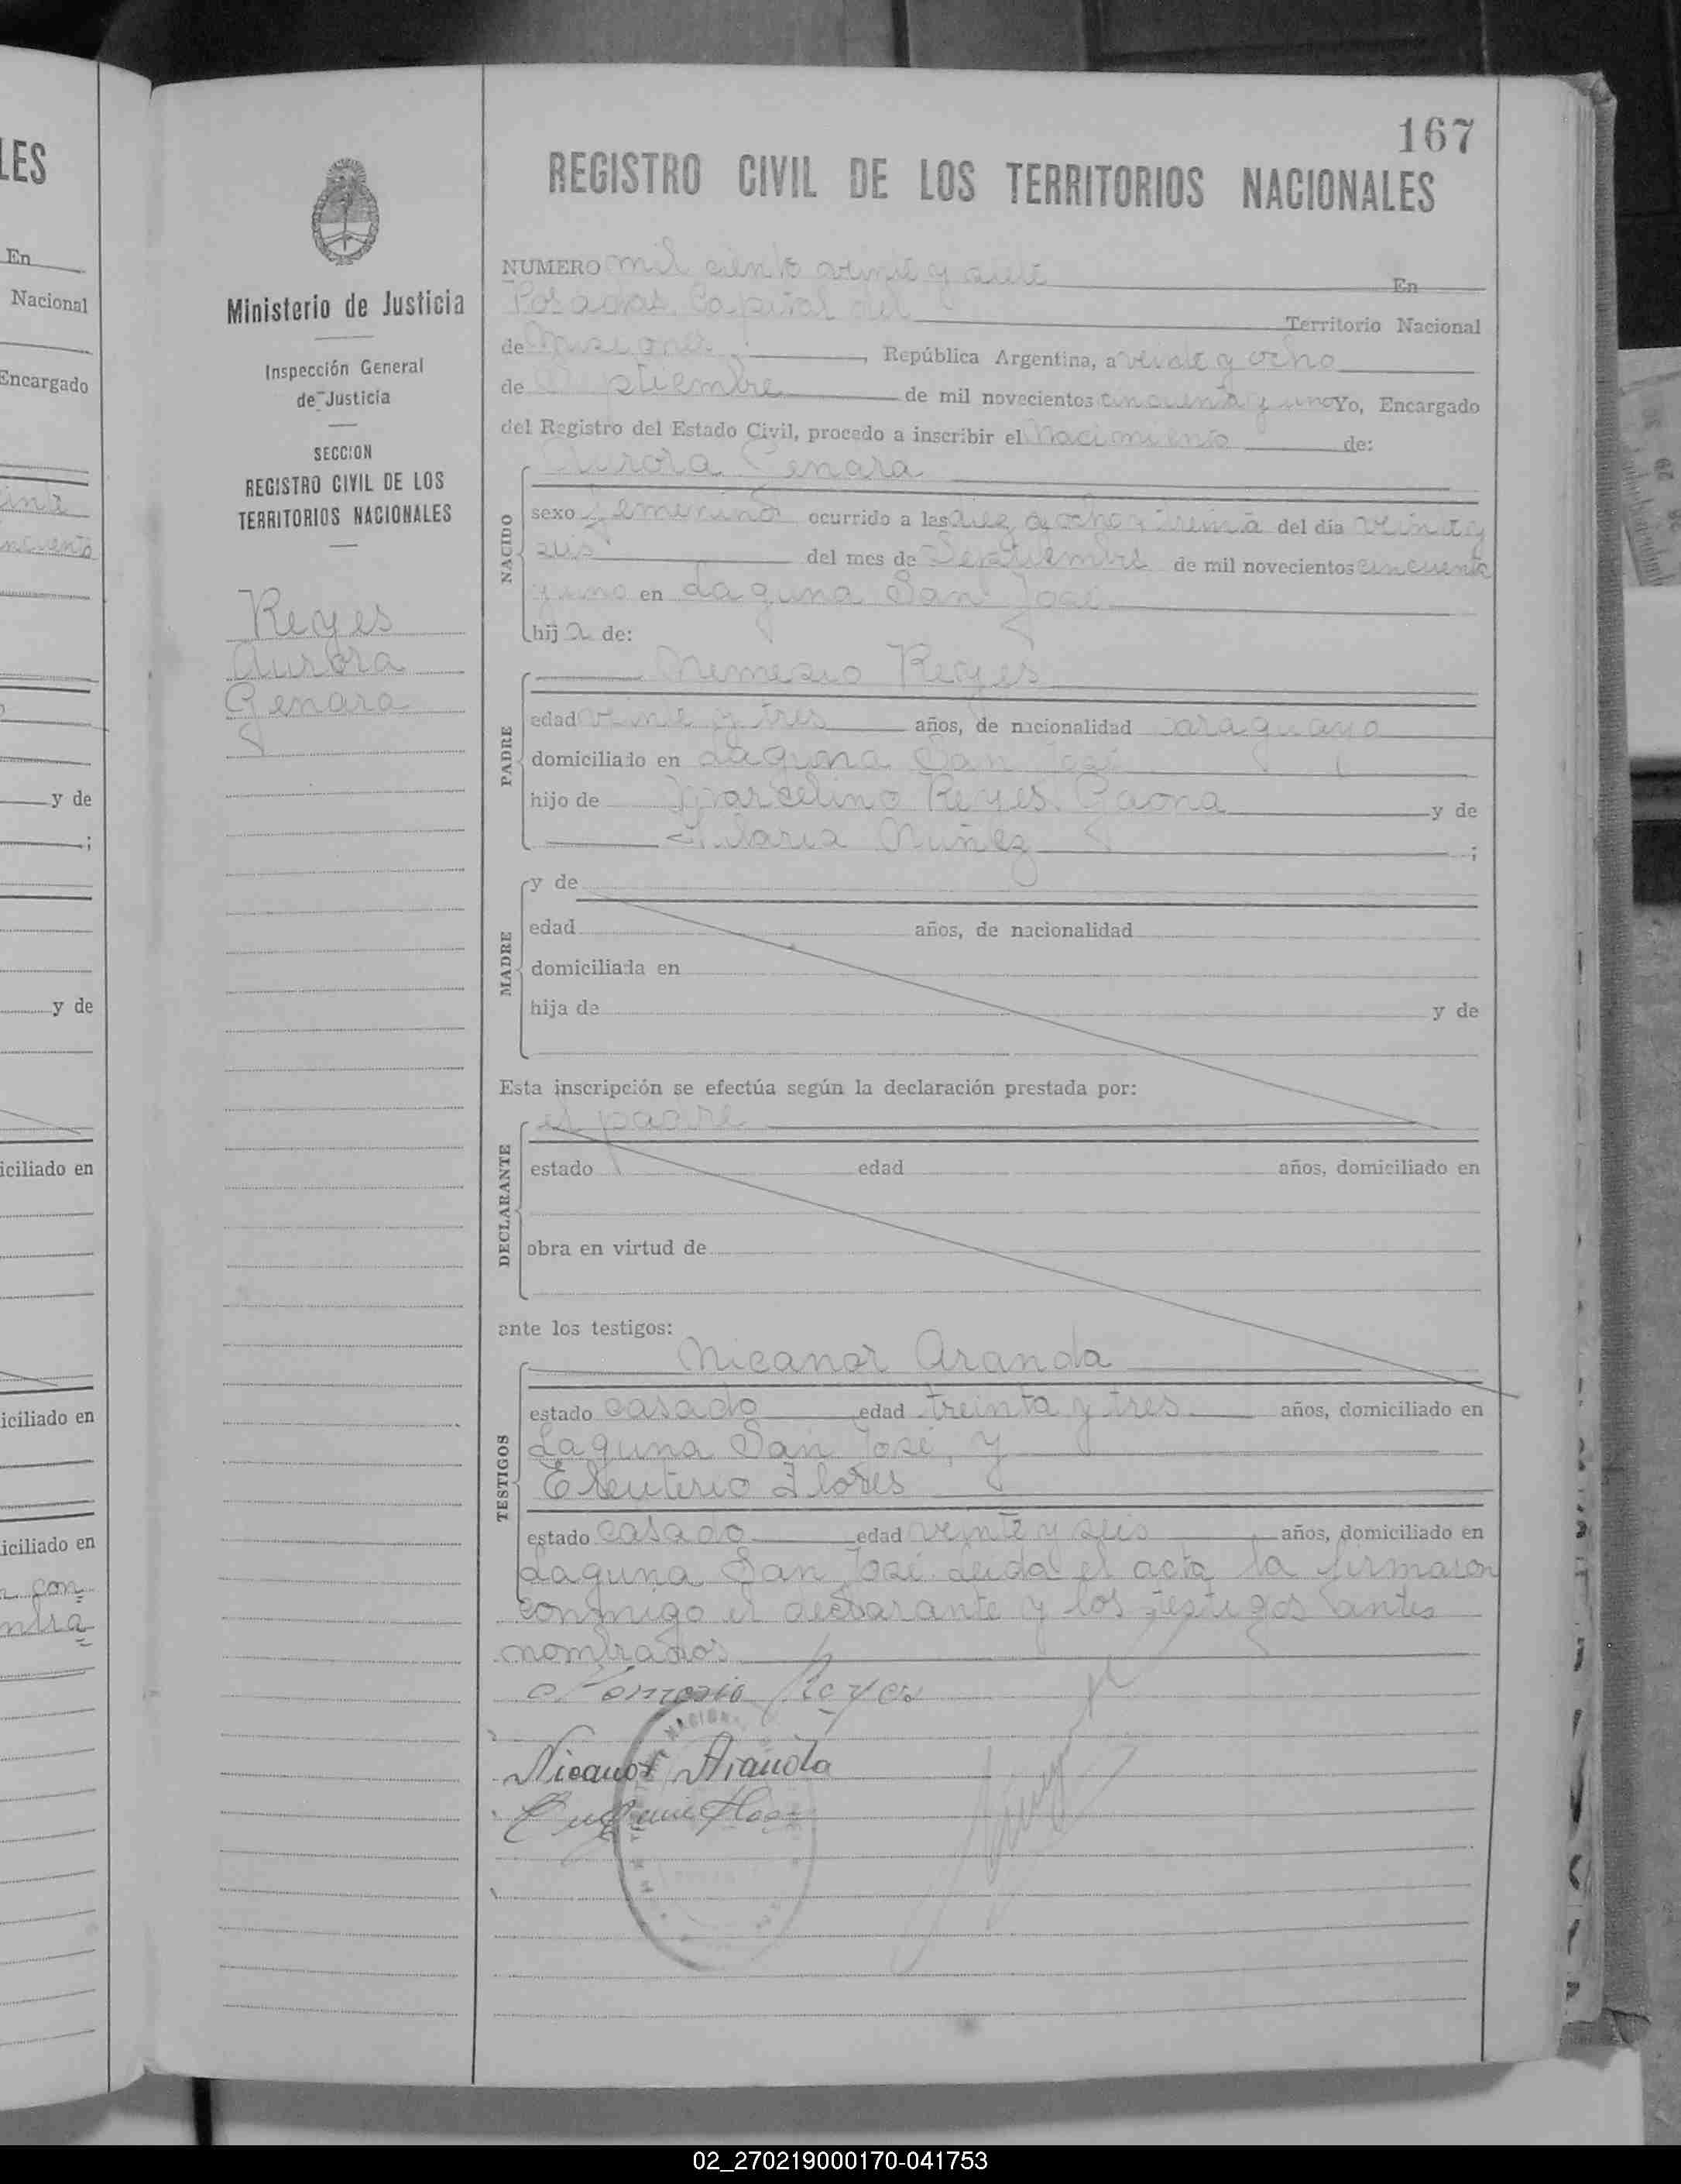 LES
En
Nacional
Encargado
y de
;
y de
iciliado en
iciliado en
iciliado en
con
Ministerio de Justicia
Inspección General
de Justicia
SECCION
REGISTRO CIVIL DE LOS
TERRITORIOS NACIONALES
Reyes
Aurora
Genara
167
REGISTRO CIVIL DE LOS TERRITORIOS NACIONALES
NUMERO mil ciento veinte y siete En
Posadas, Capital del Territorio Nacional
de Misiones, República Argentina, a veinte y ocho
de Septiembre de mil novecientos cincuenta y uno Yo, Encargado
del Registro del Estado Civil, procedo a inscribir el Nacimiento de:
Aurora Genara
NACIDO
sexo femenino ocurrido a las diez y ocho y treinta del día veinte y
seis del mes de Septiembre de mil novecientos cincuenta
y uno en Laguna San José
hija de:
Nemesio Reyes
PADRE
edad veinte y tres años, de nacionalidad paraguaya
domiciliado en Laguna San José
hijo de Marcelino Reyes Gaona y de
Hilaria Nuñez ;
MADRE
y de
edad años, de nacionalidad
domiciliada en
hija de y de
Esta inscripción se efectúa según la declaración prestada por:
el padre
DECLARANTE
estado edad años, domiciliado en
obra en virtud de
ante los testigos:
Nicanor Aranda
TESTIGOS
estado casado edad treinta y tres años, domiciliado en
Laguna San José, y
Eleuterio Flores
estado casado edad veinte y seis años, domiciliado en
Laguna San José. Leida el acta la firmaron
conmigo el declarante y los testigos antes
nombrados
Nemesio Reyes
Nicanor Aranda
02_270219000170-041753